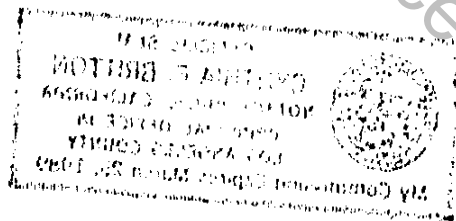 OFFICIAL SEAL
CYNTHIA E. BRITTON
NOTARY PUBLIC CALIFORNIA
PRINCIPAL OFFICE IN
LOS ANGELES COUNTY
My Commission Expires March 26, 1989